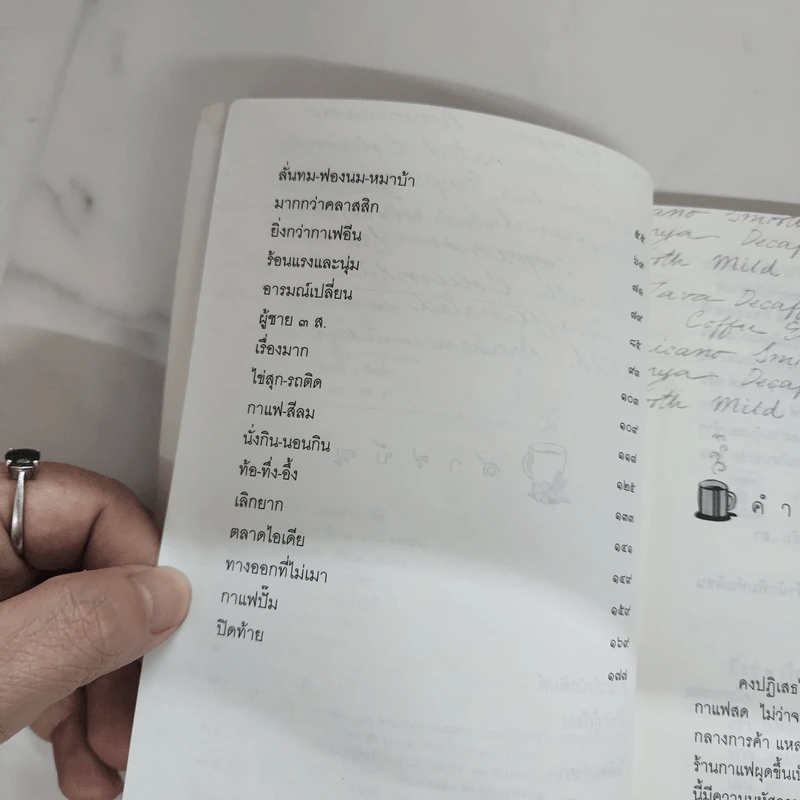 ลั่นทม-ฟองนม-หมาบ้า ๕๕
มากกว่าคลาสสิก ๖๓
ยิ่งกว่ากาเฟอีน ๗๑
ร้อนแรงและนุ่ม ๗๙
อารมณ์เปลี่ยน ๘๕
ผู้ชาย ๓ ส. ๙๓
เรื่องมาก ๑๐๑
ไข่สุก-รถติด ๑๐๙
กาแฟ-สีลม ๑๑๗
นั่งกิน-นอนกิน ๑๒๕
ท้อ-ทึ่ง-อึ้ง ๑๓๓
เลิกยาก ๑๔๑
ตลาดไอเดีย ๑๔๙
ทางออกที่ไม่เมา ๑๕๙
กาแฟปั๊ม ๑๖๙
ปิดท้าย ๑๗๗
Smooth
Decaf
Mild
Java Decaf
Coffee
Decaf
Mild
คำ
คงปฏิเสธ
กาแฟสด ไม่ว่า
กลางการค้า
ร้านกาแฟผุดขึ้น